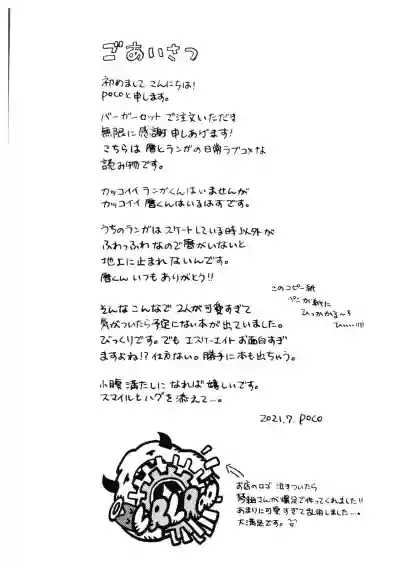 ごあいさつ
初めまして こんにちは!
pocoと申します。
バーガーセットで注文いただき
無限に感謝申しあげます!
こちらは暦とランガの日常ラブコメな
読み物です。
カッコイイ ランガくんはいませんが
カッコイイ 暦くんはいるはずです。
うちのランガは スケートしている時以外が
ふわっふわなので暦がいないと
地上に止まれないんです。
暦くん いつも ありがとう!!
このコピー紙
ペンが紙に
ひっかかる〜ろ
ひぃぃ!!!
そんなこんなで 2人が可愛すぎて
気がついたら予定にない本が出ていました。
びっくりです。でも エスケーエイト お面白すぎ
ますよね!?仕方ない。勝手に本も出ちゃう。
小腹満たしに なれば嬉しいです。
スマイルとハグを添えて…。
2021.7 poco
お店のロゴ 泣きついたら
さんが爆速で作ってくれました!!
あまりに可愛すぎて乱用しました…。
大満足です。